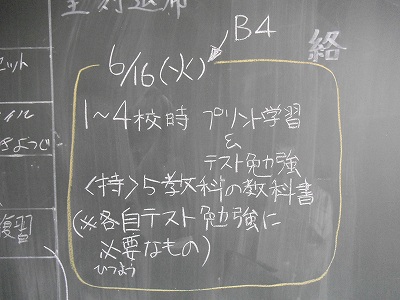 B4
絡
6/16(火)
1~4校時 プリント学習
&
テスト勉強
<持>5教科の教科書
(※各自テスト勉強に
必要なもの)
ひつよう
復習